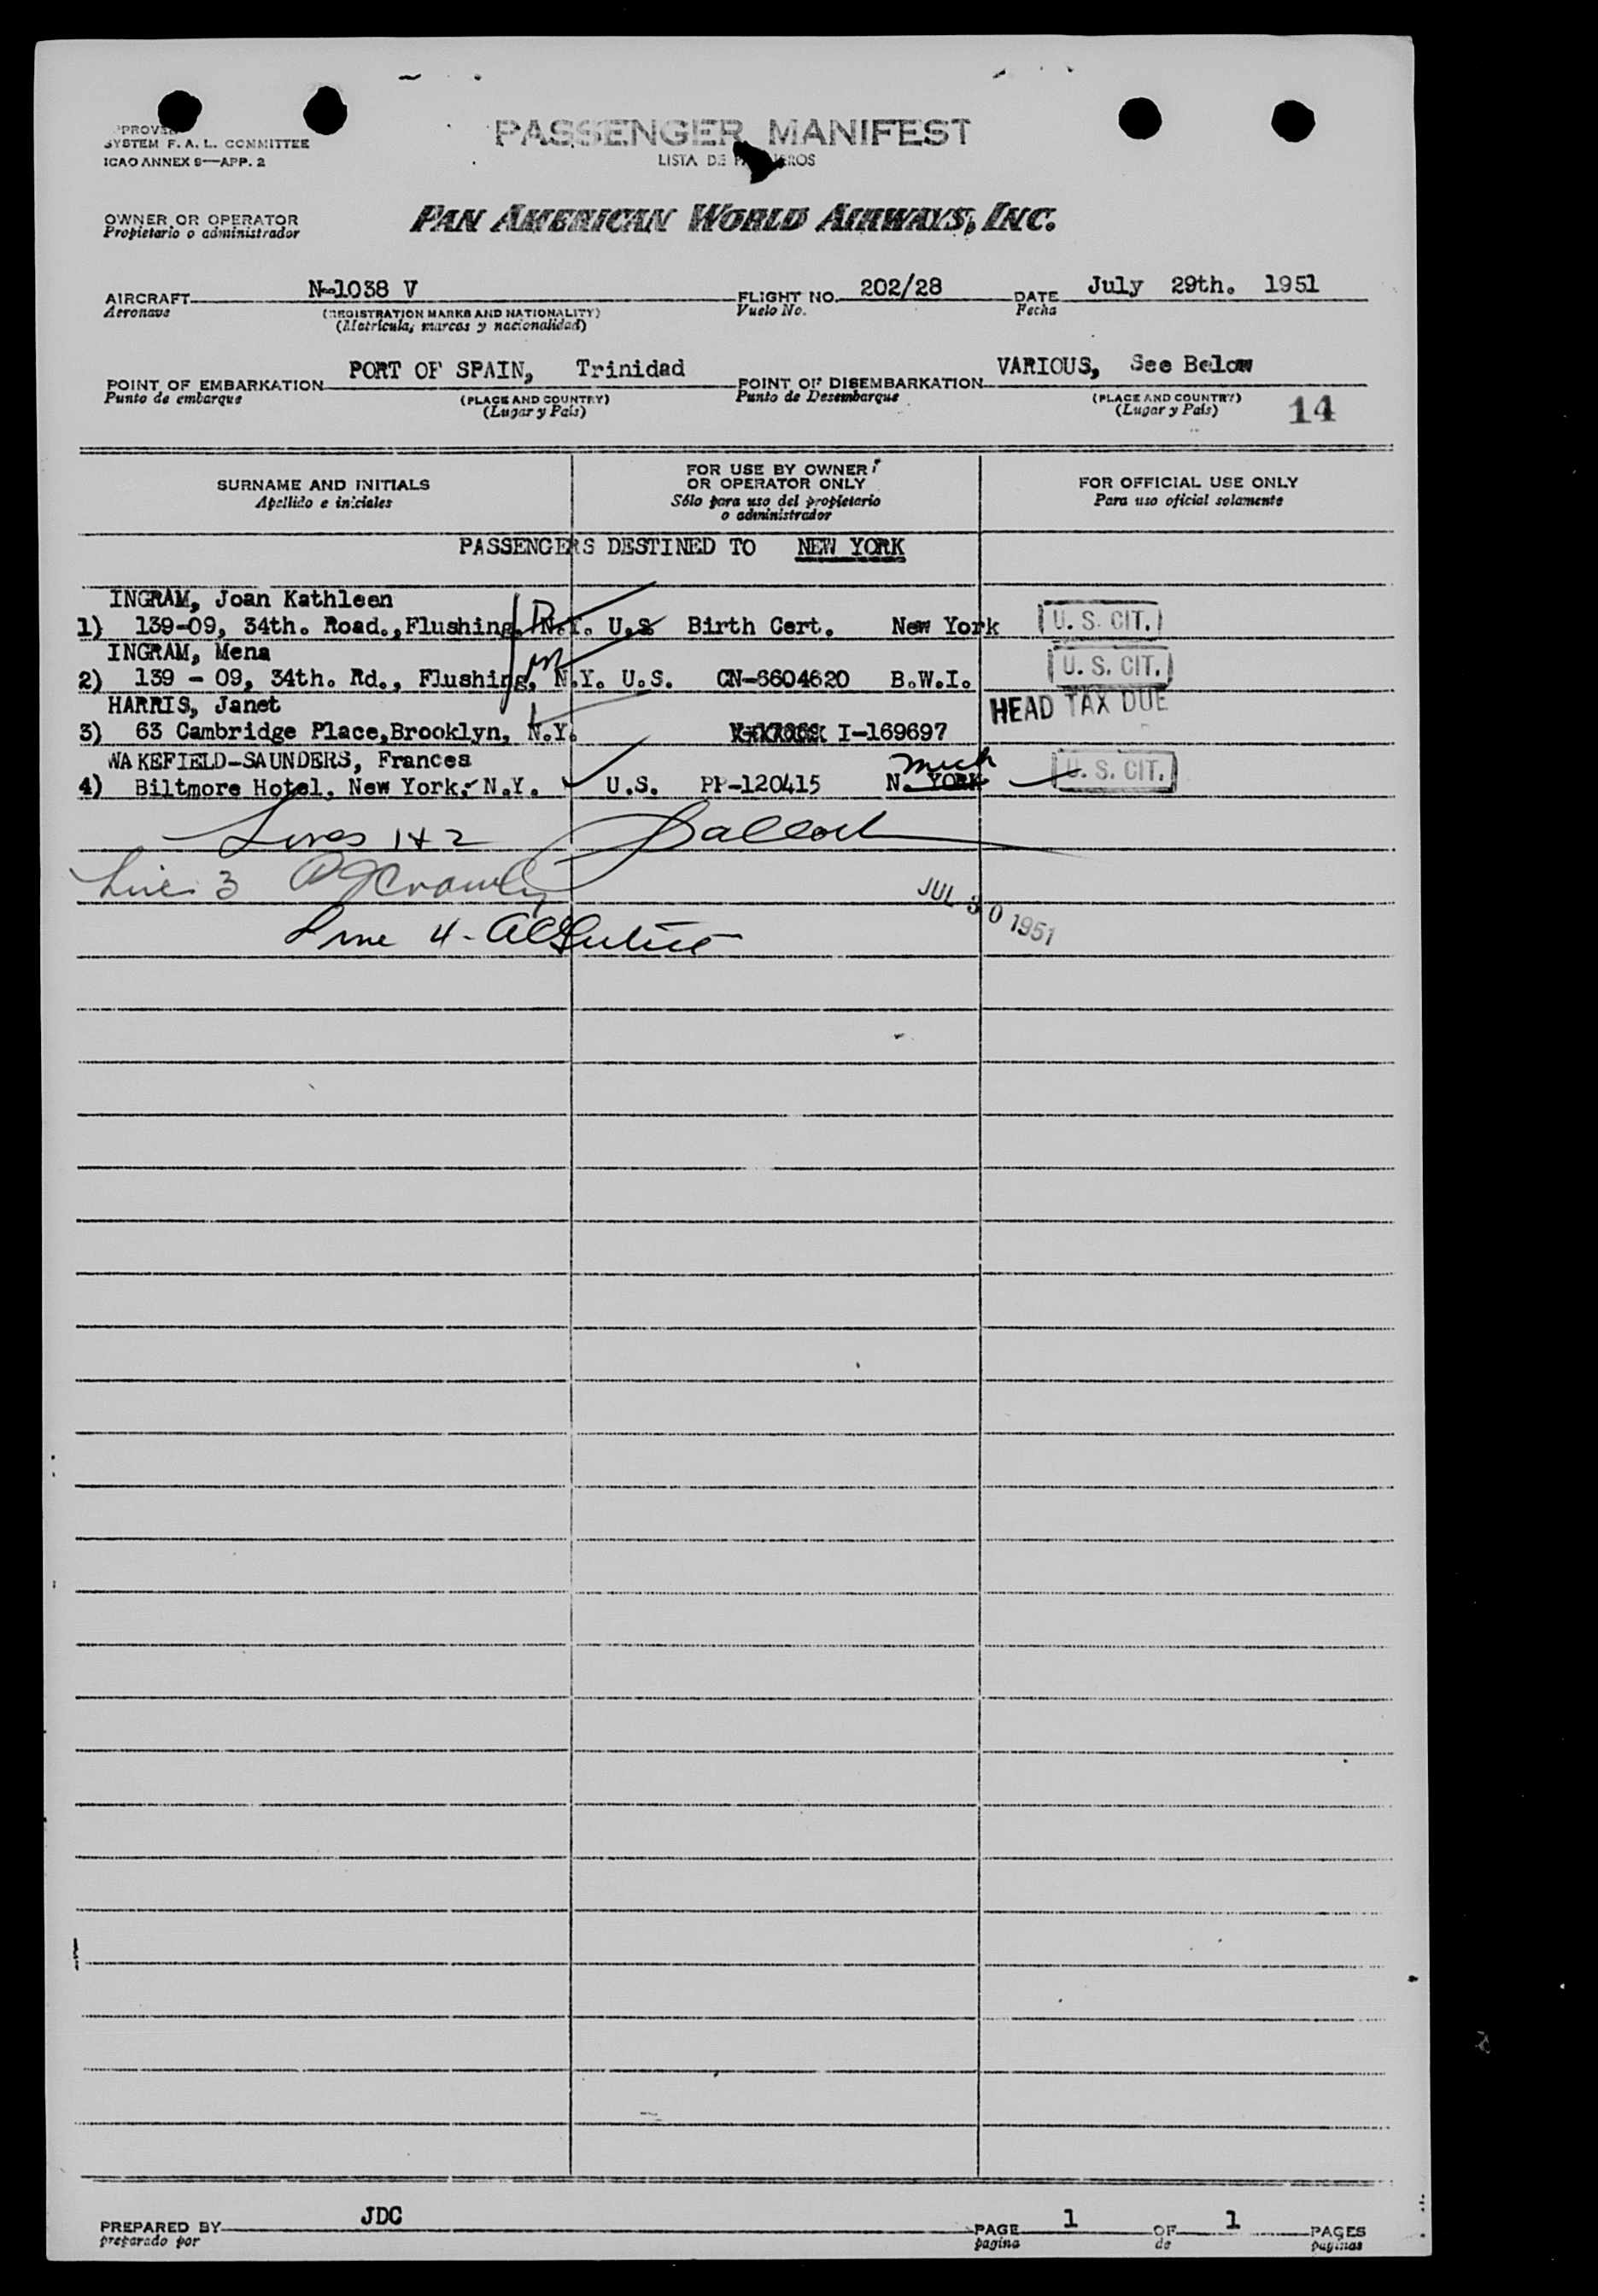 SYSTEM F. A. L. COMMITTEE
ICAO ANNEX 9—APP. 2
PASSENGER MANIFEST
LISTA DE
OWNER OR OPERATOR
Propietario o administrador
PAN AMERICAN WORLD AIRWAYS, INC.
AIRCRAFT N-1038 V FLIGHT NO. 202/28 DATE July 29th. 1951
Aeronave (REGISTRATION MARKS AND NATIONALITY) Vuelo No. Fecha
(Matrícula, marcas y nacionalidad)
POINT OF EMBARKATION PORT OF SPAIN, Trinidad POINT OF DISEMBARKATION VARIOUS, See Below
Punto de embarque (PLACE AND COUNTRY) Punto de Desembarque (PLACE AND COUNTRY)
(Lugar y País) (Lugar y País) 14
SURNAME AND INITIALS
Apellido e iniciales
FOR USE BY OWNER
OR OPERATOR ONLY
Sólo para uso del propietario
o administrador
FOR OFFICIAL USE ONLY
Para uso oficial solamente
PASSENGERS DESTINED TO NEW YORK
INGRAM, Joan Kathleen
1) 139-09, 34th. Road.,Flushing, N.Y. U.S Birth Cert. New York U. S. CIT.
INGRAM, Mena
2) 139 - 09, 34th. Rd., Flushing, N.Y. U.S. CN-6604620 B.W.I. U. S. CIT.
HARRIS, Janet HEAD TAX DUE
3) 63 Cambridge Place,Brooklyn, N.Y. I-169697
WAKEFIELD-SAUNDERS, Frances Mich
4) Biltmore Hotel, New York, N.Y. U.S. PP-120415 N. YORK U. S. CIT.
Lines 1 & 2
Line 3
JUL 30 1951
Line 4 -
PREPARED BY JDC PAGE 1 OF 1 PAGES
preparado por pagina de paginas